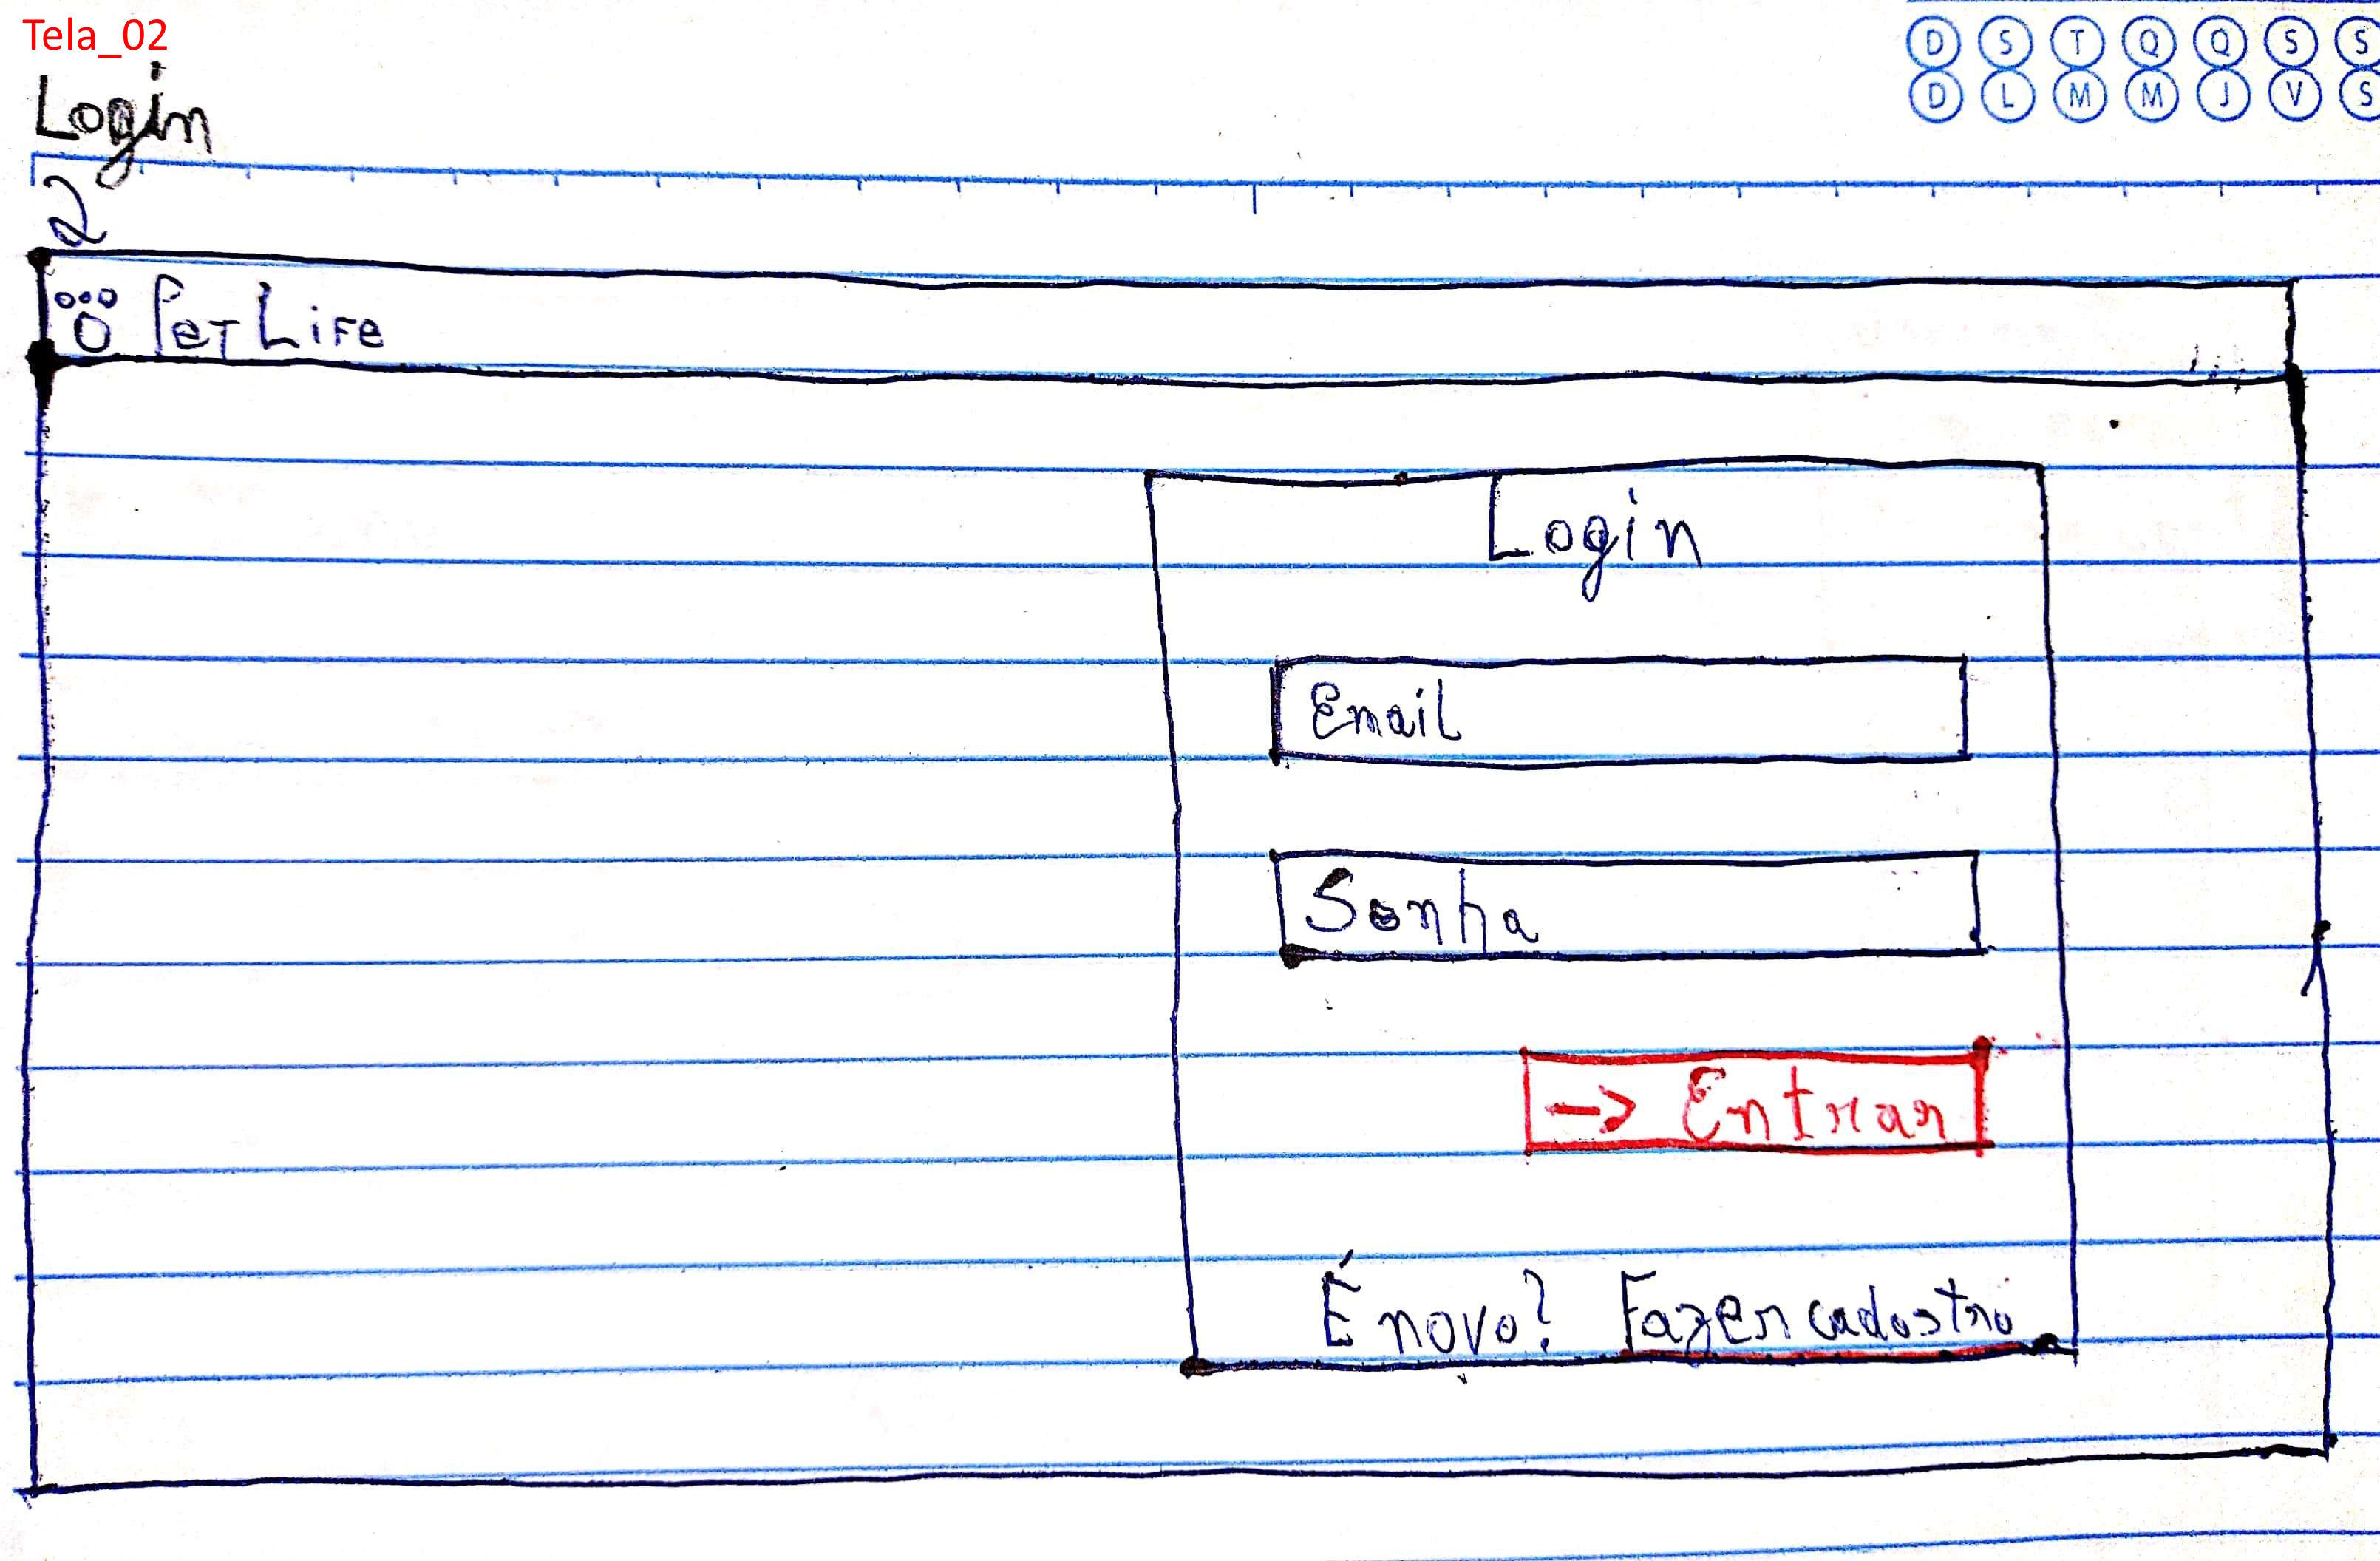 Tela_02
D S T Q Q S S
D L M M J V S
Login
2
PeT Life
Login
Email
Senha
-> Entrar
É novo? Fazer cadastro